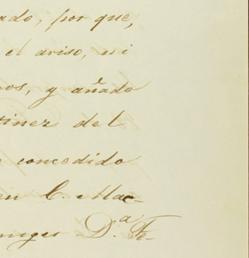 ado, por que,
el aviso, ni
os, y añado
tinez del
concedido
en C. Mac-
D.ª F-